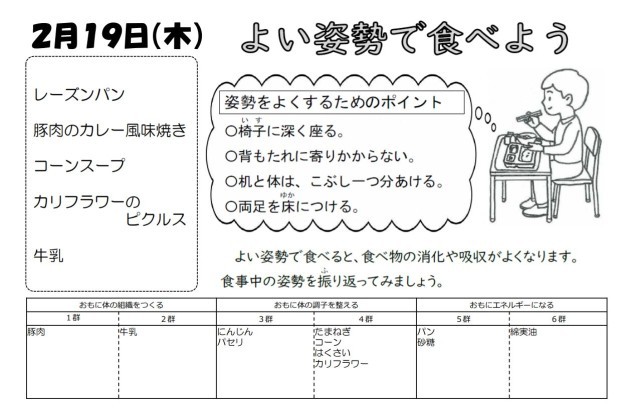 2月19日(木)
よい姿勢で食べよう
レーズンパン
豚肉のカレー風味焼き
コーンスープ
カリフラワーの
ピクルス
牛乳
姿勢をよくするためのポイント
いす
〇椅子に深く座る。
〇背もたれに寄りかからない。
〇机と体は、こぶし一つ分あける。
ゆか
〇両足を床につける。
よい姿勢で食べると、食べ物の消化や吸収がよくなります。
ふ
食事中の姿勢を振り返ってみましょう。
おもに体の組織をつくる おもに体の調子を整える おもにエネルギーになる
1群 2群 3群 4群 5群 6群
豚肉 牛乳 にんじん たまねぎ パン 綿実油
パセリ コーン 砂糖
はくさい
カリフラワー